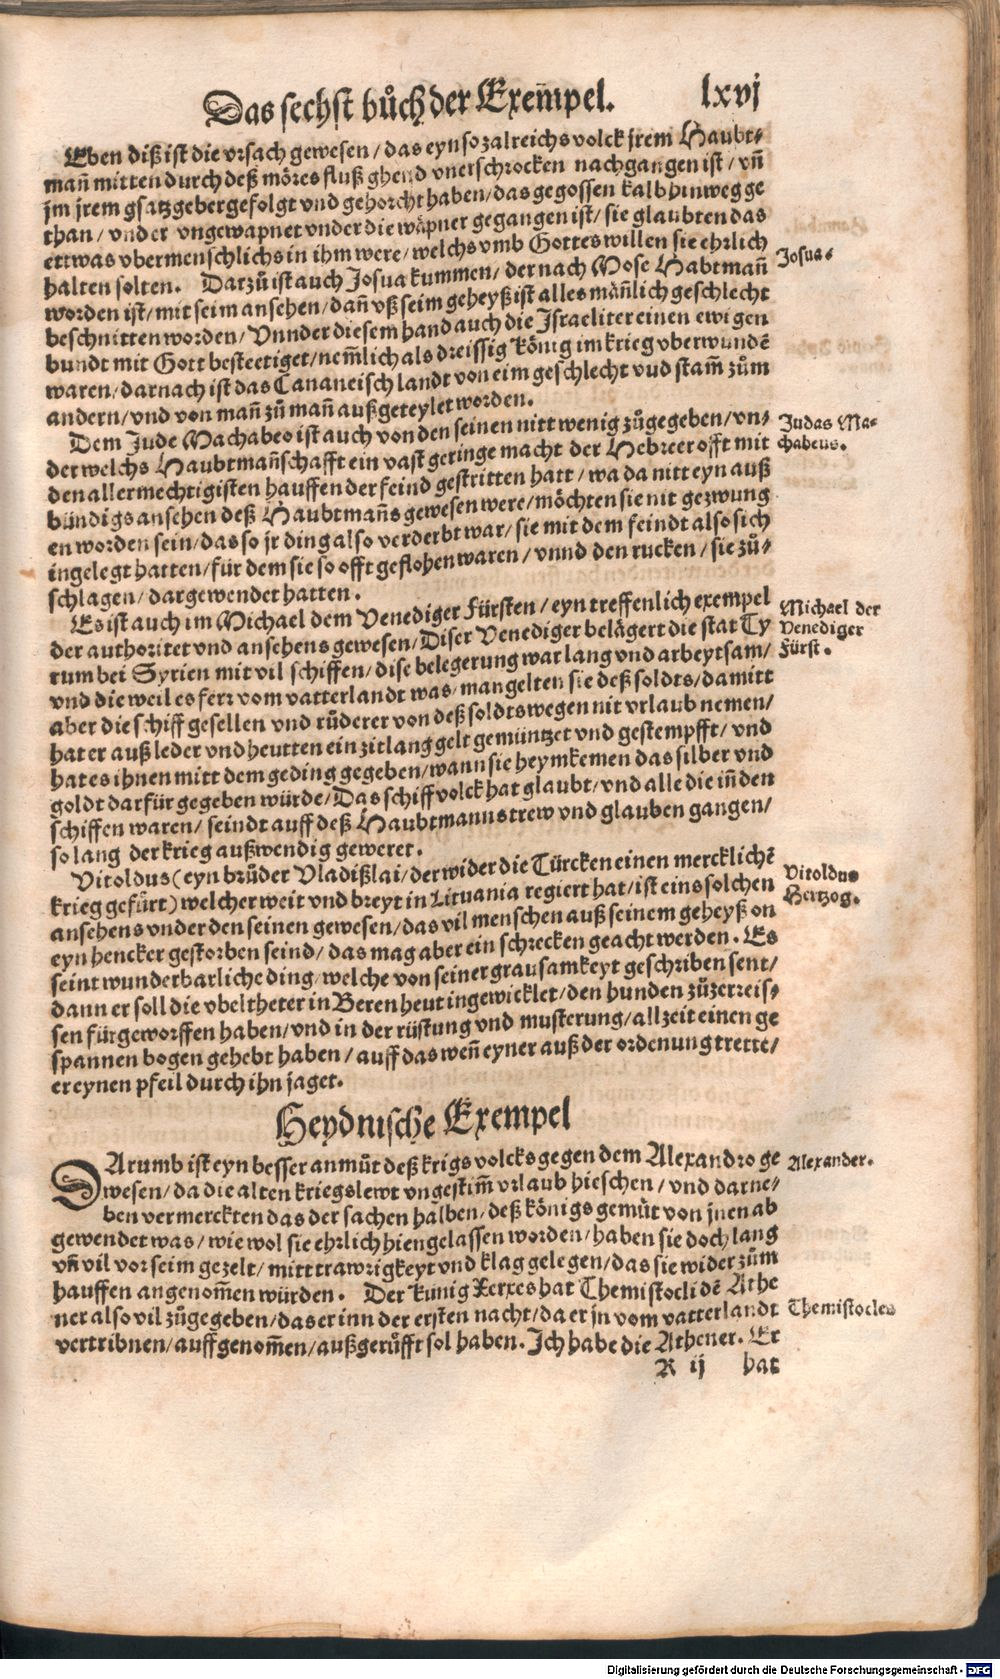 Das sechst bůch der Exem̃pel. lxvj
Eben diß ist die vrsach gewesen / das eyn so zalreichs volck jrem Haubt⸗
mañ mitten durch deß möres fluß ghend vnerschrocken nachgangen ist / vñ
jm jrem gsatzgeber gefolgt vnd gehorcht haben / das gegossen kalb hinweg ge
than / vnd er vngewapnet vnder die wäpner gegangen ist / sie glaubten das
ettwas vbermenschlichs in ihm were / welchs vmb Gottes willen sie ehrlich
halten solten. Darzů ist auch Josua kummen / der nach Mose Habtmañ
Josua⸗
worden ist / mit seim ansehen / dañ vß seim geheyß ist alles mäñlich geschlecht
beschnitten worden / Vnnder diesem hand auch die Israeliter einen ewigen
bundt mit Gott besteetiget / nem̃lich als dreissig könig im krieg vberwundē
waren / darnach ist das Cananeisch landt von eim geschlecht vud stam̃ zům
andern / vnd von mañ zů mañ außgeteylet worden.
Dem Jude Machabeo ist auch von den seinen nitt wenig zůgegeben / vn⸗
Judas Ma⸗
der welchs Haubtmañschafft ein vast geringe macht der Hebreer offt mit
chabeus.
den allermechtigisten hauffen der feind gestritten hatt / wa da nitt eyn auß
bündigs ansehen deß Haubtmañs gewesen were / möchten sie nit gezwung
en worden sein / das so jr ding also verderbt war / sie mit dem feindt also sich
ingelegt hatten / für dem sie so offt geflohen waren / vnnd den rucken / sie zů⸗
schlagen / dargewendet hatten.
Es ist auch im Michael dem Venediger Fürsten / eyn treffenlich exempel
Michael der
der authoritet vnd ansehens gewesen / Diser Venediger belägert die stat Ty
Venediger
rum bei Syrien mit vil schiffen / dise belegerung war lang vnd arbeytsam /
Fürst.
vnd die weil es ferr vom vatterlandt was / mangelten sie deß soldts / damitt
aber die schiff gesellen vnd růderer von deß soldts wegen nit vrlaub nemen /
hat er auß leder vnd heutten ein zitlang gelt gemüntzet vnd gestempfft / vnd
hat es ihnen mitt dem geding gegeben / wann sie heymkemen das silber vnd
goldt darfür gegeben würde / Das schiffvolck hat glaubt / vnd alle die iñ den
schiffen waren / seindt auff deß Haubtmanns trew vnd glauben gangen /
so lang der krieg außwendig geweret.
Vitoldus (eyn brůder Vladißlai / der wider die Türcken einen mercklichē
Vitoldus
krieg gefůrt) welcher weit vnd breyt in Lituania regiert hat / ist eins solchen
Hertzog.
ansehens vnder den seinen gewesen / das vil menschen auß seinem geheyß on
eyn hencker gestorben seind / das mag aber ein schrecken geacht werden. Es
seint wunderbarliche ding / welche von seiner grausamkeyt geschriben sent /
dann er soll die vbeltheter in Beren heut ingewicklet / den hunden zůzerreis⸗
sen fürgeworffen haben / vnd in der rüstung vnd musterung / allzeit einen ge
spannen bogen gehebt haben / auff das weñ eyner auß der ordenung trette /
er eynen pfeil durch ihn jaget.
Heydnische Exempel
DArumb ist eyn besser anmůt deß krigsvolcks gegen dem Alexandro ge
Alexander.
wesen / da die alten kriegslewt vngestim̃ vrlaub hieschen / vnd darne⸗
ben vermerckten das der sachen halben / deß königs gemüt von jnen ab
gewendet was / wie wol sie ehrlich hiengelassen worden / haben sie doch lang
vñ vil vor seim gezelt / mitt trawrigkeyt vnd klag gelegen / das sie wider zům
hauffen angenom̃en würden. Der kunig Xerxes hat Themistocli dē Athe
ner also vil zůgegeben / das er inn der ersten nacht / da er jn vom vatterlandt
Themistocles
vertribnen / auffgenom̃en / außgerůfft sol haben. Ich habe die Athener. Er
R ij hat
Digitalisierung gefördert durch die Deutsche Forschungsgemeinschaft - DFG